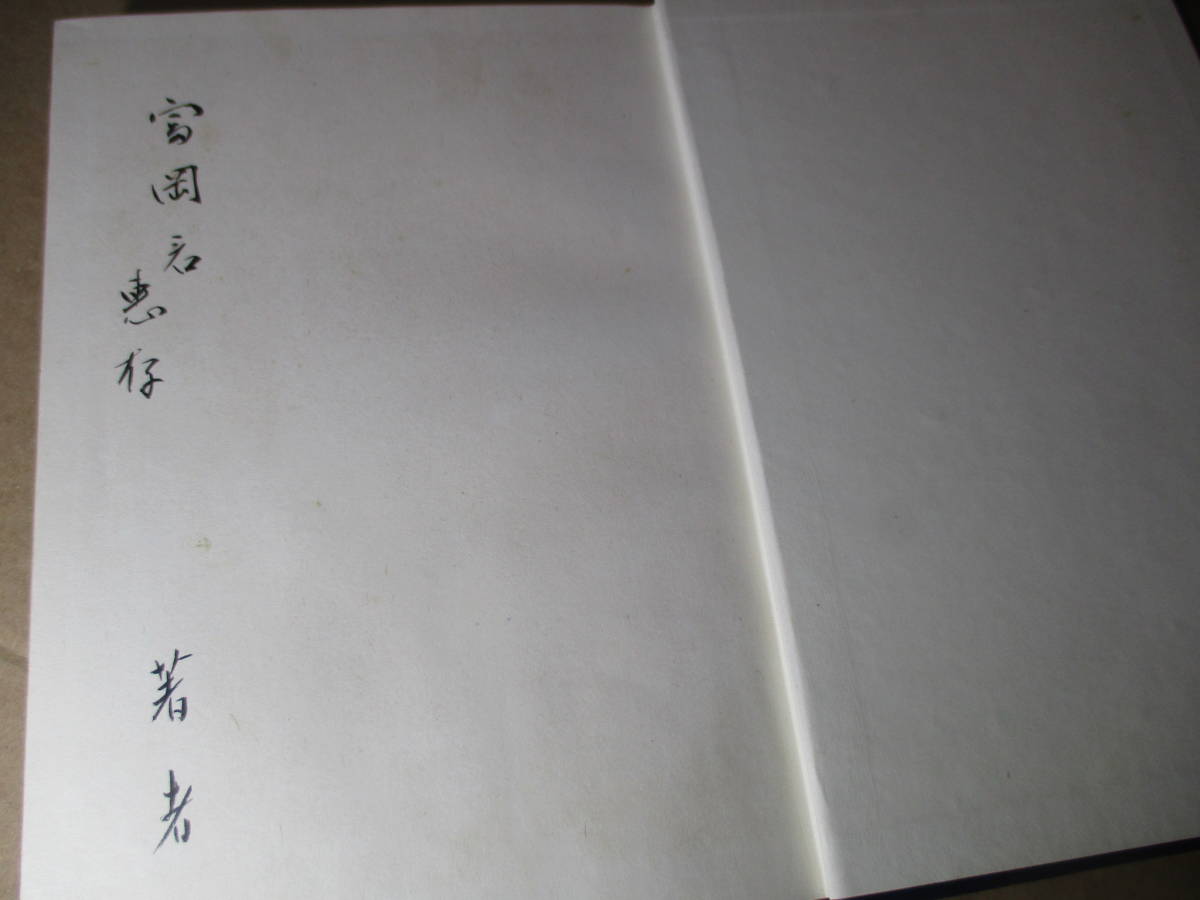 富岡君
恵存
著者